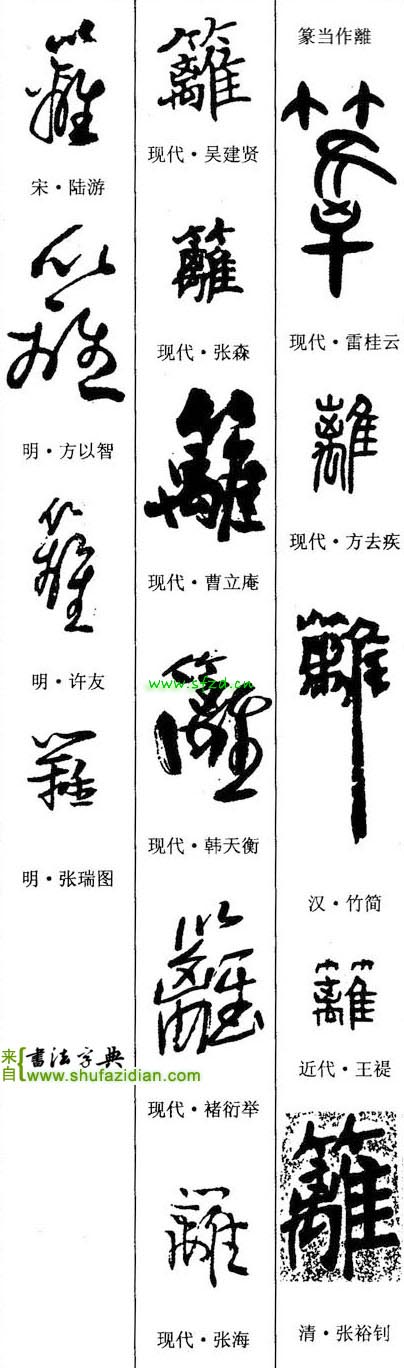 篆当作離
篱
现代·雷桂云
離
现代·方去疾
籬
汉·竹简
籬
近代·王禔
籬
清·张裕钊
籬
现代·吴建贤
籬
现代·张森
籬
现代·曹立庵
www.sfzd.cn
籬
现代·韩天衡
籬
现代·褚衍举
籬
现代·张海
籬
宋·陆游
籬
明·方以智
籬
明·许友
籬
明·张瑞图
来自 书法字典
www.shufazidian.com